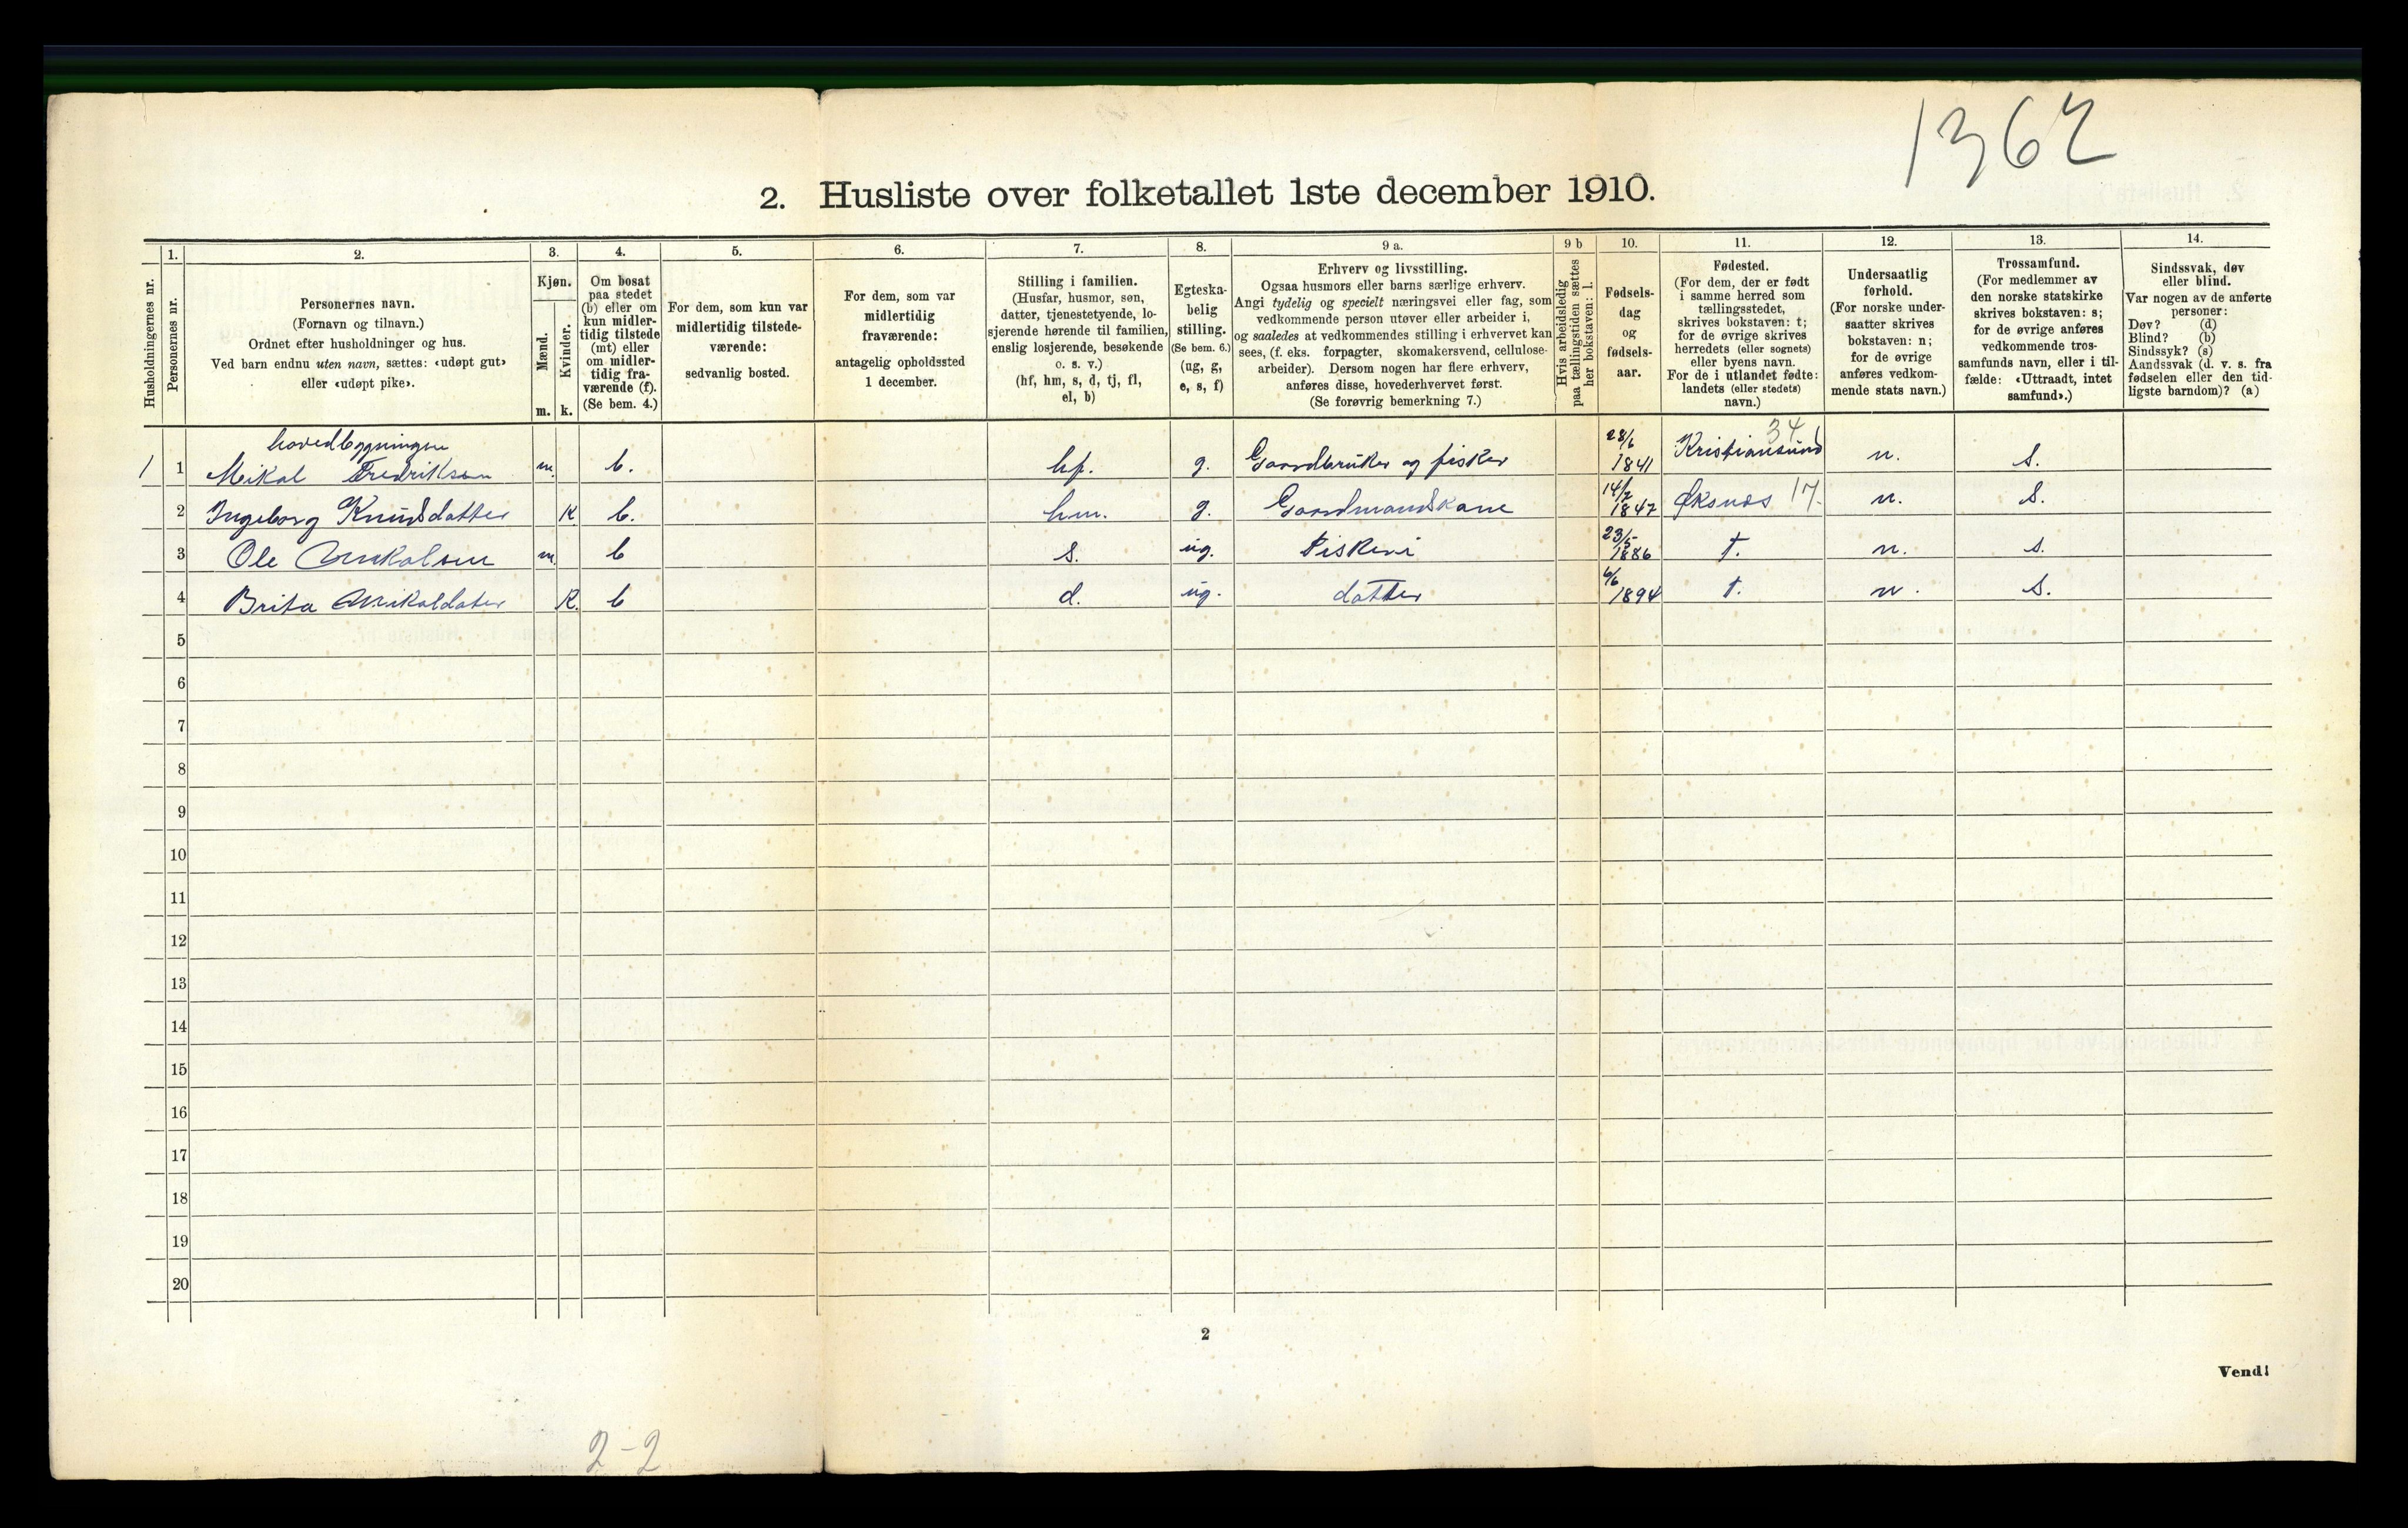 1362
2. Husliste over folketallet 1ste december 1910.
Husholdningernes nr.
1.
Personernes nr.
2.
Personernes navn.
(Fornavn og tilnavn.)
Ordnet efter husholdninger og hus.
Ved barn endnu uten navn, sættes: «udøpt gut»
eller «udøpt pike».
3.
Kjøn.
Mænd.
Kvinder.
m.
k.
4.
Om bosat
paa stedet
(b) eller om
kun midler-
tidig tilstede
(mt) eller
om midler-
tidig fra-
værende (f).
(Se bem. 4.)
5.
For dem, som kun var
midlertidig tilstede-
værende:
sedvanlig bosted.
6.
For dem, som var
midlertidig
fraværende:
antagelig opholdssted
1 december.
7.
Stilling i familien.
(Husfar, husmor, søn,
datter, tjenestetyende, lo-
sjerende hørende til familien,
enslig losjerende, besøkende
o. s. v.)
(hf, hm, s, d, tj, fl,
el, b)
8.
Egteska-
belig
stilling.
(Se bem. 6.)
(ug, g,
e, s, f)
9 a.
Erhverv og livsstilling.
Ogsaa husmors eller barns særlige erhverv.
Angi tydelig og specielt næringsvei eller fag, som
vedkommende person utøver eller arbeider i,
og saaledes at vedkommendes stilling i erhvervet kan
sees, (f. eks. forpagter, skomakersvend, cellulose-
arbeider). Dersom nogen har flere erhverv,
anføres disse, hovederhvervet først.
(Se forøvrig bemerkning 7.)
9 b
Hvis arbeidsledig
paa tællingstiden sættes
her bokstaven: l.
10.
Fødsels-
dag
og
fødsels-
aar.
11.
Fødested.
(For dem, der er født
i samme herred som
tællingsstedet,
skrives bokstaven: t;
for de øvrige skrives
herredets (eller sognets)
eller byens navn.
For de i utlandet fødte:
landets (eller stedets)
navn.)
12.
Undersaatlig
forhold.
(For norske under-
saatter skrives
bokstaven: n;
for de øvrige
anføres vedkom-
mende stats navn.)
13.
Trossamfund.
(For medlemmer av
den norske statskirke
skrives bokstaven: s;
for de øvrige anføres
vedkommende tros-
samfunds navn, eller i til-
fælde: «Uttraadt, intet
samfund».)
14.
Sindssvak, døv
eller blind.
Var nogen av de anførte
personer:
Døv? (d)
Blind? (b)
Sindssyk? (s)
Aandssvak (d. v. s. fra
fødselen eller den tid-
ligste barndom)? (a)
hovedbygningen
1 1 Mikal Fredriksen m. b. hf. g. Gaardbruker og fisker 28/6 1841 Kristiansund 34 n. s.
2 Ingeborg Knudsdatter K b. hm. g. Gaardmandskone 14/7 1847 Øksnes 17. n. s.
3 Ole Mikalsen m. b s. ug. Fiskeri 23/5 1886 t. n. s.
4 Brita Mikaldater K. b d. ug. datter 6/6 1894 t. n. s.
5
6
7
8
9
10
11
12
13
14
15
16
17
18
19
20
2
Vend!
2-2